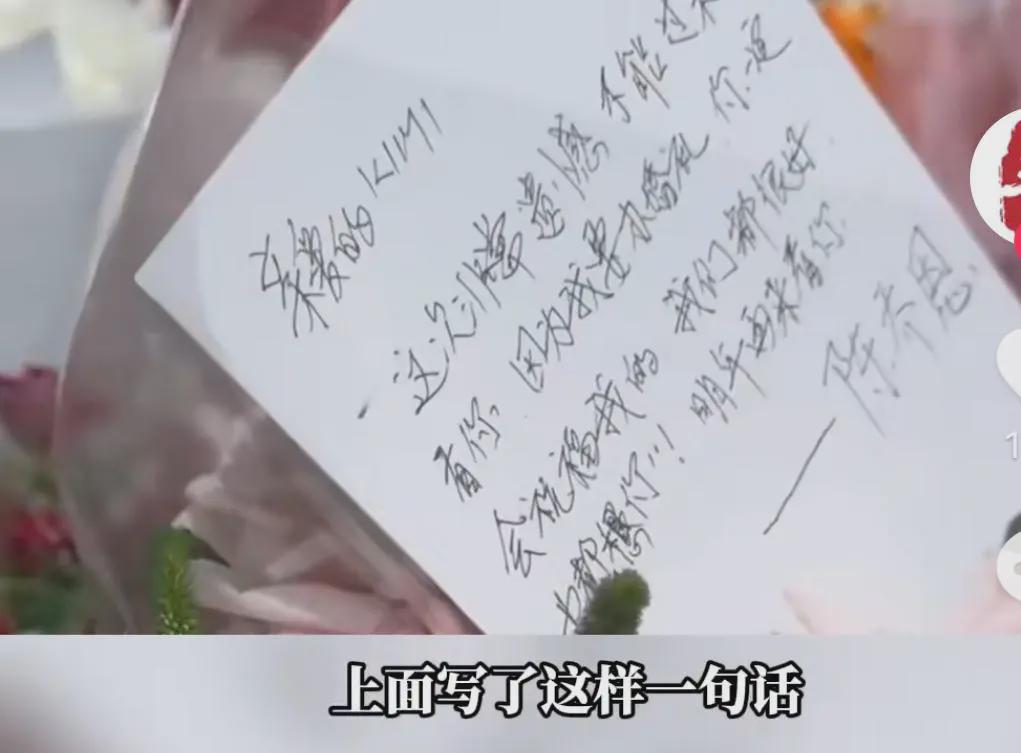 亲爱的 KIMI
这次非常遗憾 不能过来
看你。因为我要办婚礼 你一定
会祝福我的 我们都很好
也都想你!!! 明年再来看你.
——陈乔恩.
上面写了这样一句话